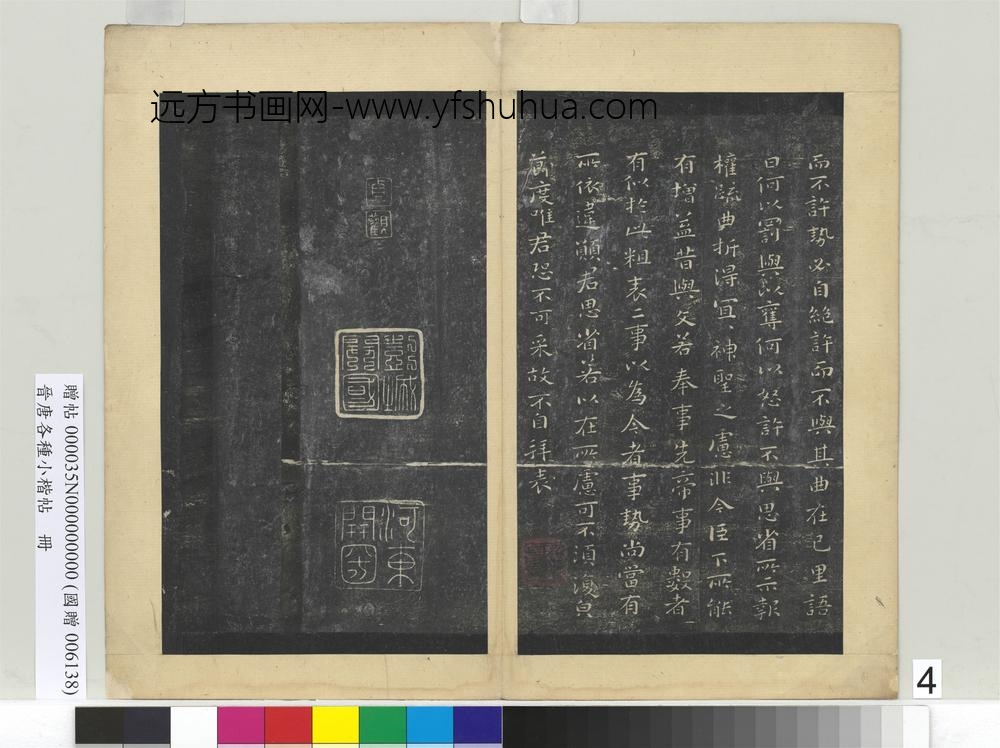 远方书画网-www.yfshuhua.com
而不許勢必自絕許而不與其曲在己里語
曰何以罰與以奪何以怒許不與思省所示報
權疏曲折得宜、神聖之慮非今臣下所能
有增益昔與文若奉事先帝事有數者
有似於此粗表二事以為今者事勢尚當有
所依違願君思省若以在所慮可不須復皃
節度唯君恐不可采故不自拜表
貞觀
彭城開國
河東開國
贈帖 000035N000000000 (國贈 006138)
晉唐各種小楷帖 冊
4